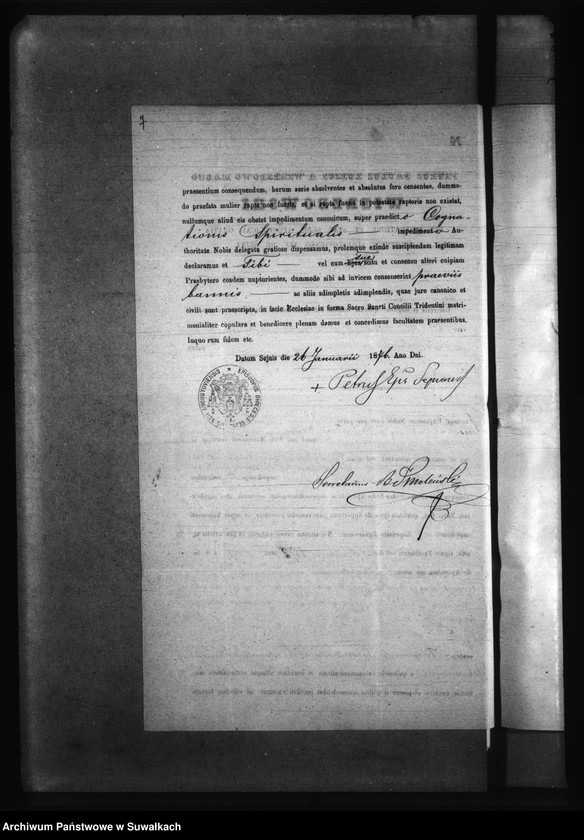 7
praesentium consequendum, harum serie absolventes et absolutos fore censentes, dummo-
do praefata mulier rapta non fuerit, et si rapta fuerit in potestate raptoris non existat,
nullumque aliud eis obstet impedimentum canonicum, super praedicto Cogna-
tionis Spiritualis impedimento Au-
thoritate Nobis delegata gratiose dispensamus, prolemque exinde suscipiendam legitimam
declaramus et Tibi vel cum scitu et consensu alteri cuipiam
Presbytero eosdem nupturientes, dummodo sibi ad invicem consenserint praeviis
bannis ac aliis adimpletis adimplendis, quae jure canonico et
civili sunt praescripta, in facie Ecclesiae in forma Sacro Sancti Concilii Tridentini matri-
monialiter copulare et benedicere plenam damus et concedimus facultatem praesentibus.
Inquo rum fidem etc.
Datum Sejnis die 26 Januarii 1876. Ano Dni.
+ Petrus Eps
Secretarius B Smoleński
Archiwum Państwowe w Suwałkach